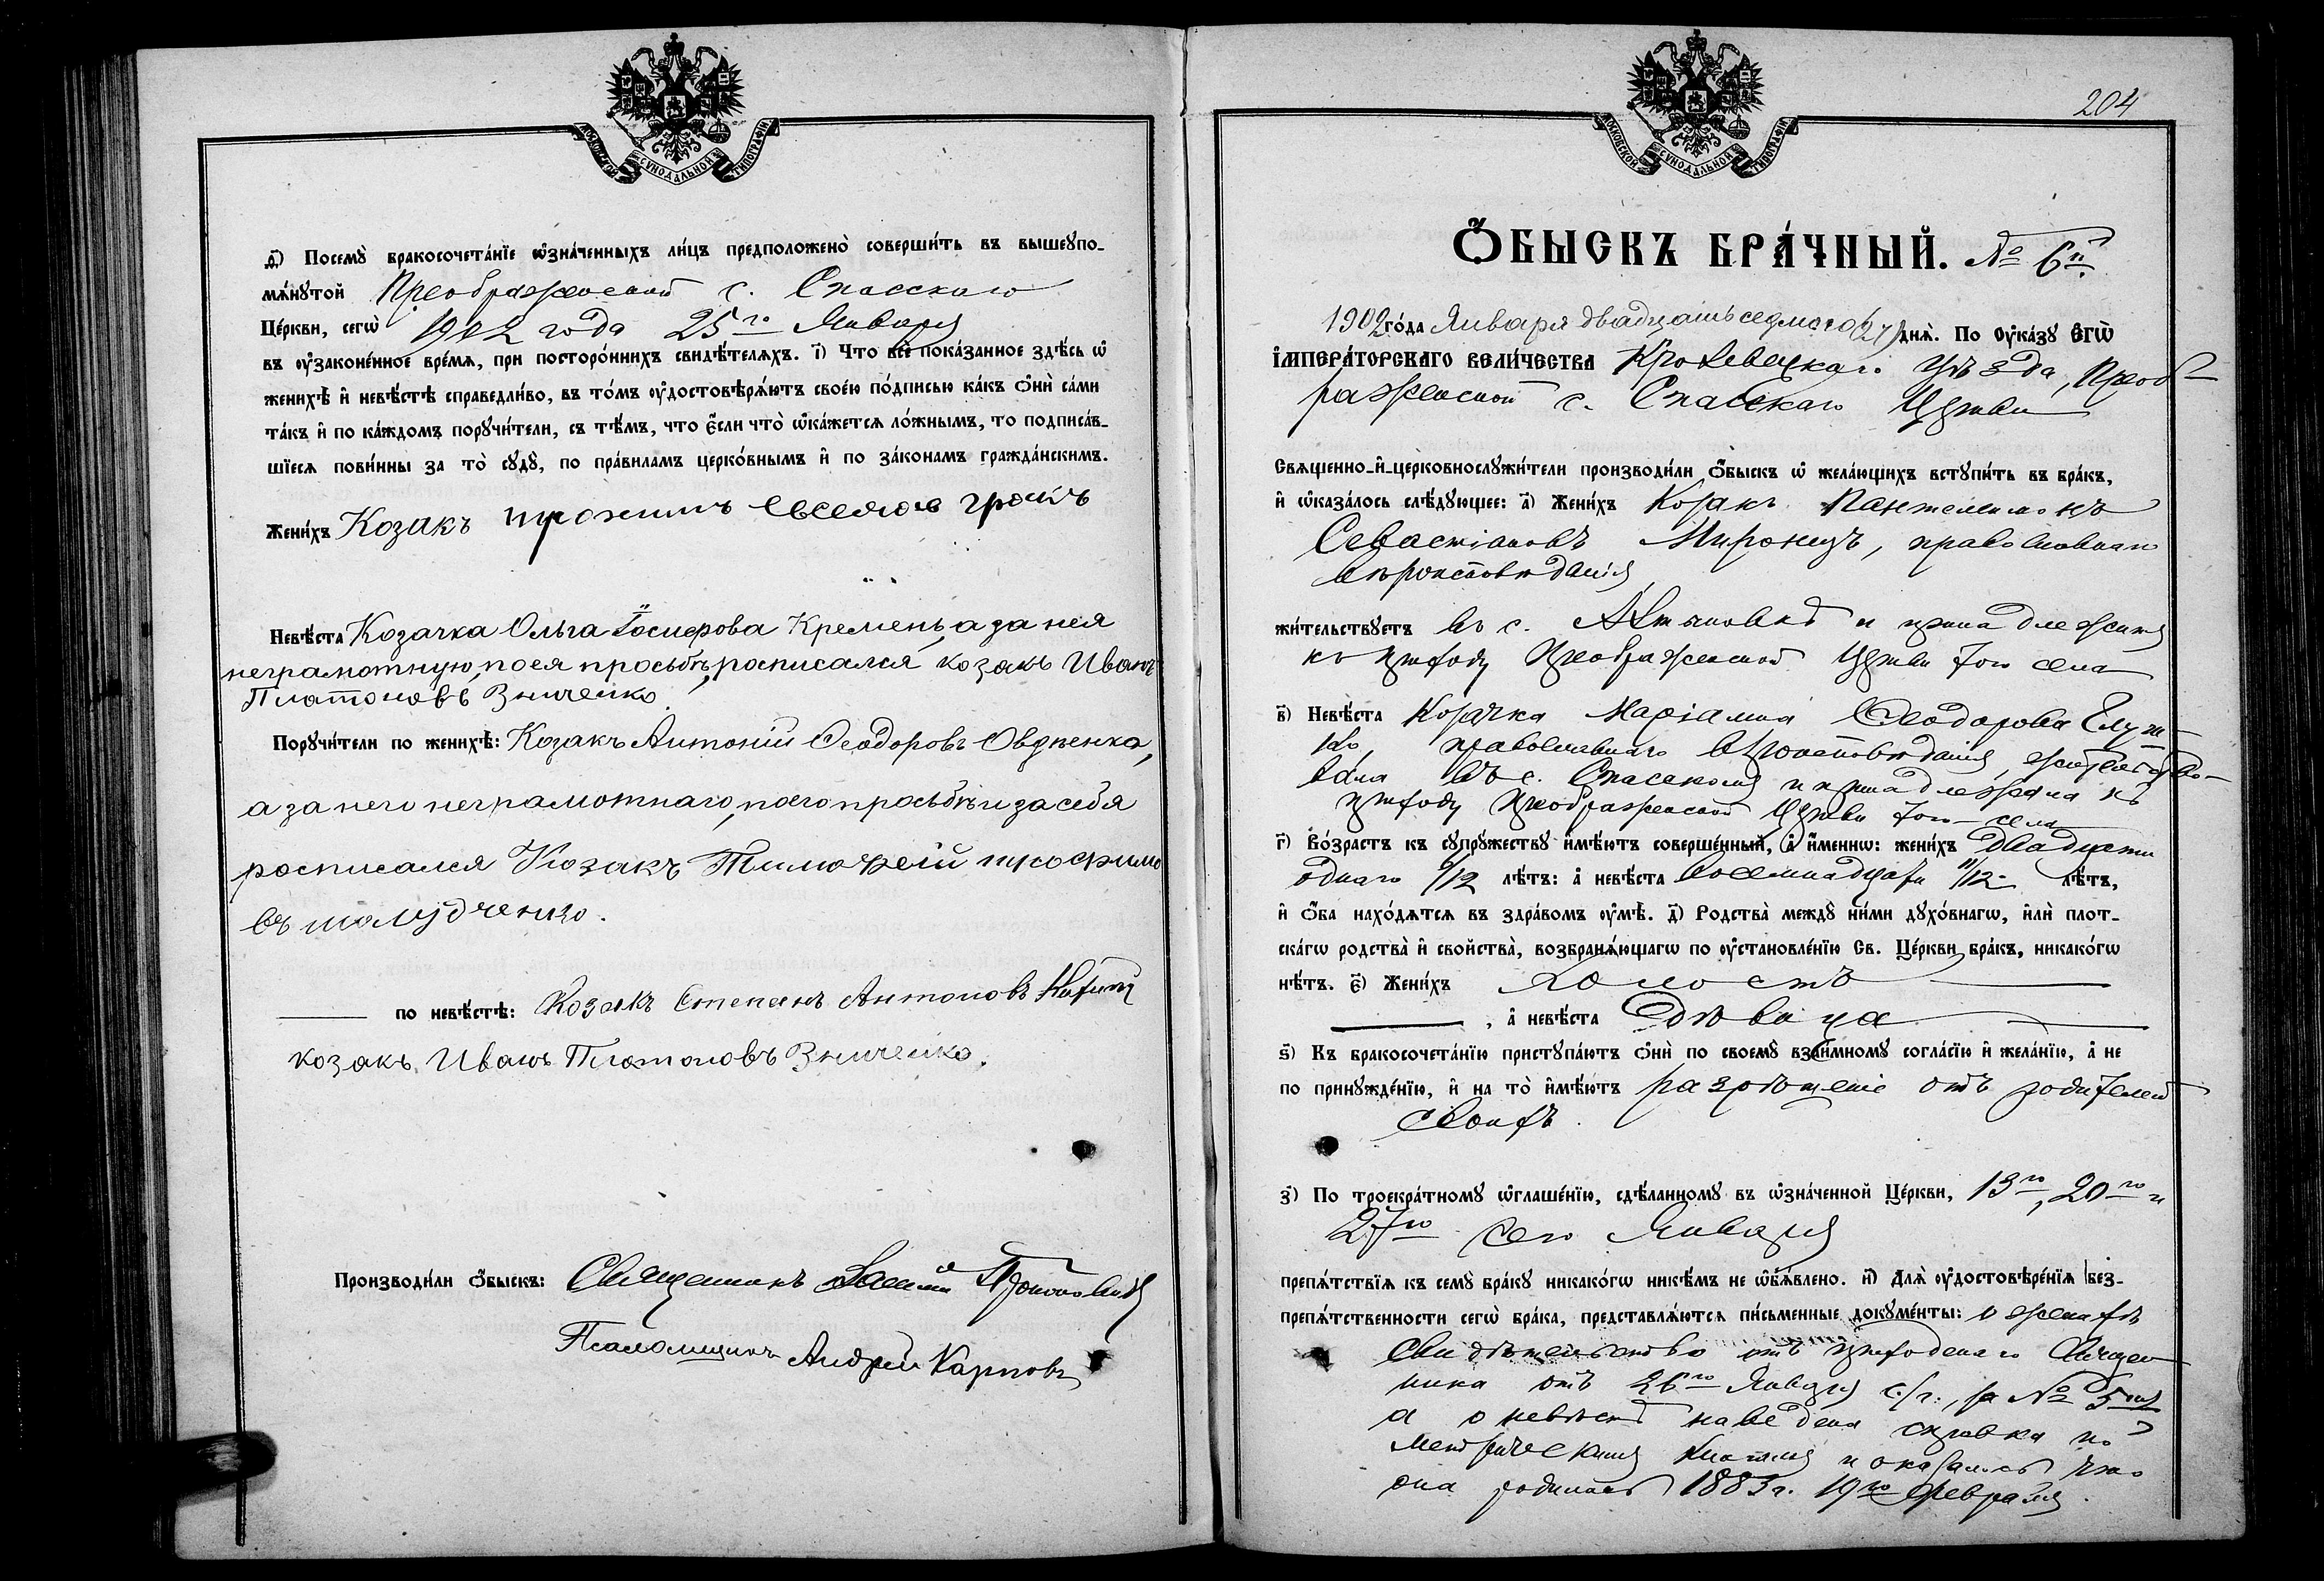 МОСКОВСКОЙ СѴНОДАЛЬНОЙ ТИПОГРАФІИ
д҃) Посемꙋ̀ бракосочета́нїе ѡ҆зна́ченныхъ ли́цъ предположено̀ соверши́ть въ вышеꙋпо-
мѧ́нꙋтой Преображенской с. Спасскаго
Це́ркви, сегѡ̀ 1902 года 25го Января
въ ᲂу҆законе́нное вре́мѧ, при посторо́ннихъ свидѣ́телѧхъ. і҃) Что всѐ пока́занное здѣ́сь ѡ҆
женихѣ̀ и҆ невѣ́стѣ справедли́во, въ то́мъ ᲂу҆достовѣрѧ́ютъ свое́ю по́дписью ка́къ ѻ҆нѝ са́ми
та́къ и҆ по ка́ждомъ порꙋчи́тели, съ тѣ́мъ, что є҆́сли что̀ ѡ҆ка́жетсѧ ло́жнымъ, то подписа́в-
шїесѧ пови́нны за то̀ сꙋдꙋ̀, по пра́виламъ церко́внымъ и҆ по зако́намъ гражда́нскимъ.
Жени́хъ Козакъ
Невѣ́ста Козачка Ольга Іосифова Кремень, а за нея
неграмотную, по ея просьбѣ, росписался козакъ Иванъ
Платоновъ Зниченко.
Порꙋчи́тели по женихѣ̀: Козакъ Антоній Ѳеодоровъ Овдѣенко,
а за него неграмотнаго, по его просьбѣ и за себя
росписался Козакъ Тимоѳей трофимо
въ
по невѣ́стѣ: Козакъ Степанъ Антоновъ
козакъ Иванъ Платоновъ Зниченко.
Производи́ли ѻ҆́быскъ: Священникъ Василій
Псаломщикъ Андрей Карповъ
204
МОСКОВСКОЙ СѴНОДАЛЬНОЙ ТИПОГРАФІИ
Ѻ҆́БЫСКЪ БРА́ЧНЫЙ. № 6й.
1902 го́да Января двадцать седмого (27) днѧ̀. По ᲂу҆ка́зꙋ Є҆ГѠ̀
І҆МПЕРА́ТОРСКАГО ВЕЛИ́ЧЕСТВА Кролевецкаго уѣзда, Преоб-
раженской с. Спасскаго Церкви
Свѧщенно-и҆-церковнослꙋжи́тели производи́ли ѻ҆́быскъ ѡ҆ жела́ющихъ встꙋпи́ть въ бра́къ,
и҆ ѡ҆каза́лось слѣ́дꙋющее: а҃) Жени́хъ Козакъ Пантелеимонъ
Севастіановъ Миронецъ, православнаго
вѣроисповѣданія
жи́тельствꙋетъ въ с. и принадлежитъ
къ приходу Преображенской Церкви того села
в҃) Невѣ́ста Козачка Маріамна Ѳеодорова
православнаго вѣроисповѣданія, жительство-
вала въ с. Спасскомъ и принадлежала къ
приходу Преображенской Церкви того села
г҃) Во́зрастъ къ сꙋпрꙋ́жествꙋ и҆мѣ́ютъ соверше́нный, а҆ и҆́менни: жени́хъ двадцати
одного 6/12 лѣ́тъ: а҆ невѣ́ста восемнадцати 11/12 лѣ́тъ,
и҆ ѻ҆́ба нахо́дѧтсѧ въ здра́вомъ ᲂу҆мѣ̀. д҃) Родства̀ междꙋ̀ ни́ми дꙋхо́внагѡ, и҆лѝ плот-
ска́гѡ родства̀ и҆ свойства̀, возбранѧ́ющагѡ по ᲂу҆становле́нїю Св. Це́ркви бра́къ, никако́гѡ
нѣ́тъ. є҃) Жени́хъ холостъ
, а҆ невѣ́ста дѣвица
ѕ҃) Къ бракосочета́нїю пристꙋпа́ютъ ѻ҆нѝ по своемꙋ̀ взаи́мномꙋ согла́сїю и҆ жела́нїю, а҆ не
по принꙋжде́нїю, и҆ на то̀ и҆мѣ́ютъ разрѣшеніе отъ родителей
своихъ.
з҃) По троекра́тномꙋ ѡ҆глаше́нїю, сдѣ́ланномꙋ въ ѡ҆зна́ченной Це́ркви, 13го, 20го и
27го сего Января
препѧ́тствїѧ къ семꙋ̀ бра́кꙋ никако́гѡ никѣ́мъ не ѡ҆бъѧ́влено. и҃) Длѧ̀ ᲂу҆достовѣре́нїѧ без-
препѧ́тственности сегѡ̀ бра́ка, представлѧ́ютсѧ пи́сьменные докꙋме́нты: о женихѣ
свидѣтельство отъ приходскаго Священ-
ника отъ 26го Января с./г., за № 5мъ
а о невѣстѣ наведена справка по
метрическимъ книгамъ и оказалось что
она родилась 1883 г. 19го февраля.